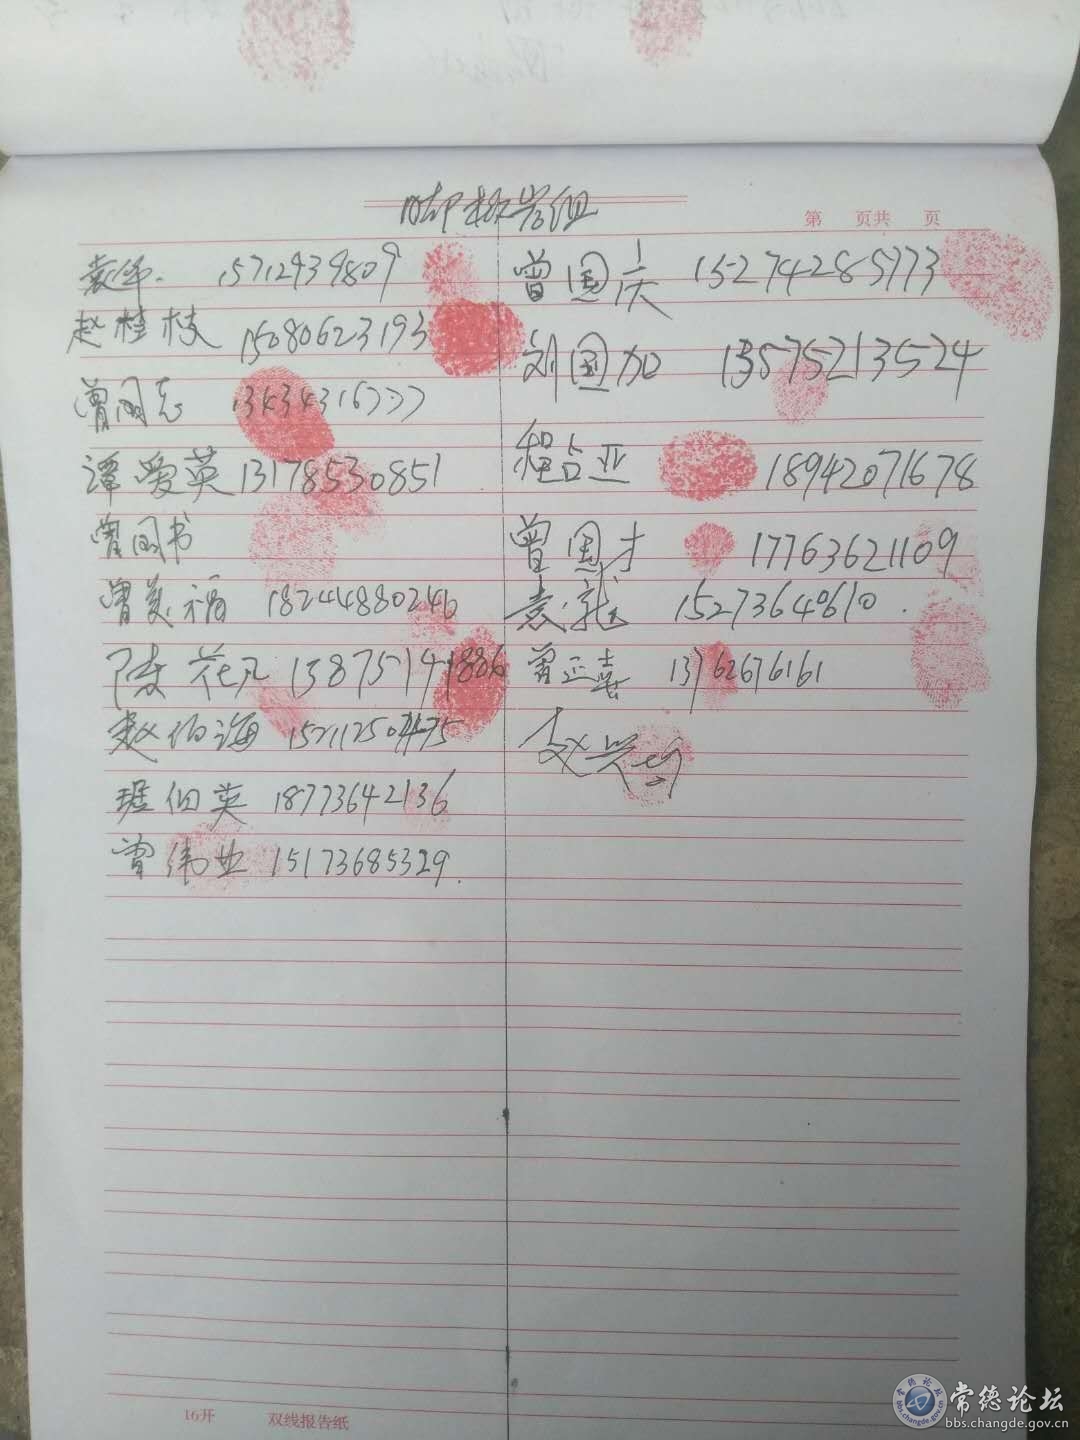 岩组
第 页共 页
袁华. 15712939809
赵桂枝 15080623193
曾国志 13434316777
谭爱英 13178530851
曾国书
曾美福 18244880246
陈花凡 13875141886
赵伯海
伯英 18773642136
曾伟业 15173685329.
曾国庆 15274285773
刘国加 13575213524
程占亚 18942071678
曾国才 17763621109
袁龙 15273640610.
曾正喜 13762676161
赵
16开 双线报告纸
常德论坛
bbs.changde.gov.cn